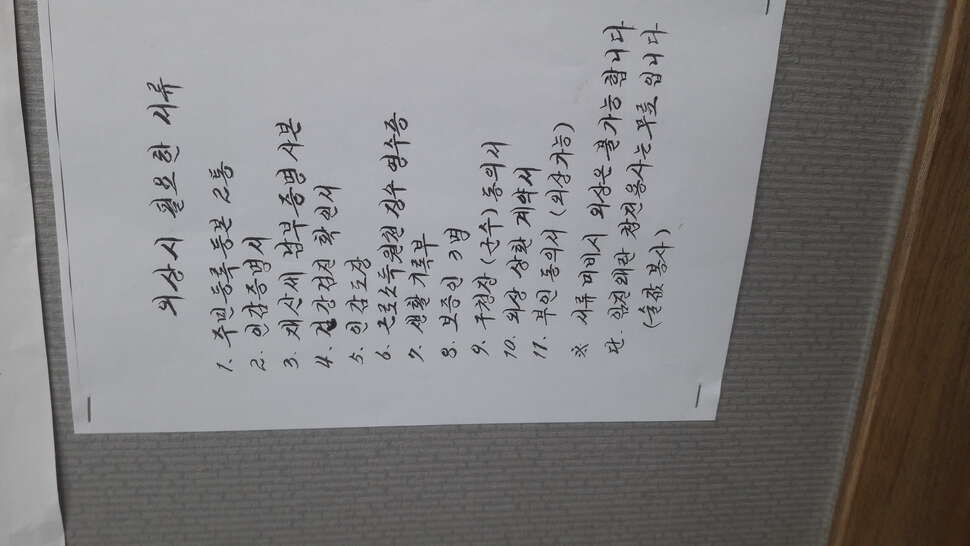 외상시 필요한 서류
1. 주민등록등본 2통
2. 인감증명서
3. 재산세 납부 증명 사본
4. 건강검진 확인서
5. 인감도장
6. 근로소득 원천 징수 영수증
7. 생활 기록부
8. 보증인 3명
9. 구청장 (군수) 동의서
10. 외상 상환 계약서
11. 부인 동의서 (외상가능)
※ 서류 미비시 외상은 불가능 합니다
단. 임진왜란 참전용사는 무료 입니다
(술값 봉사)